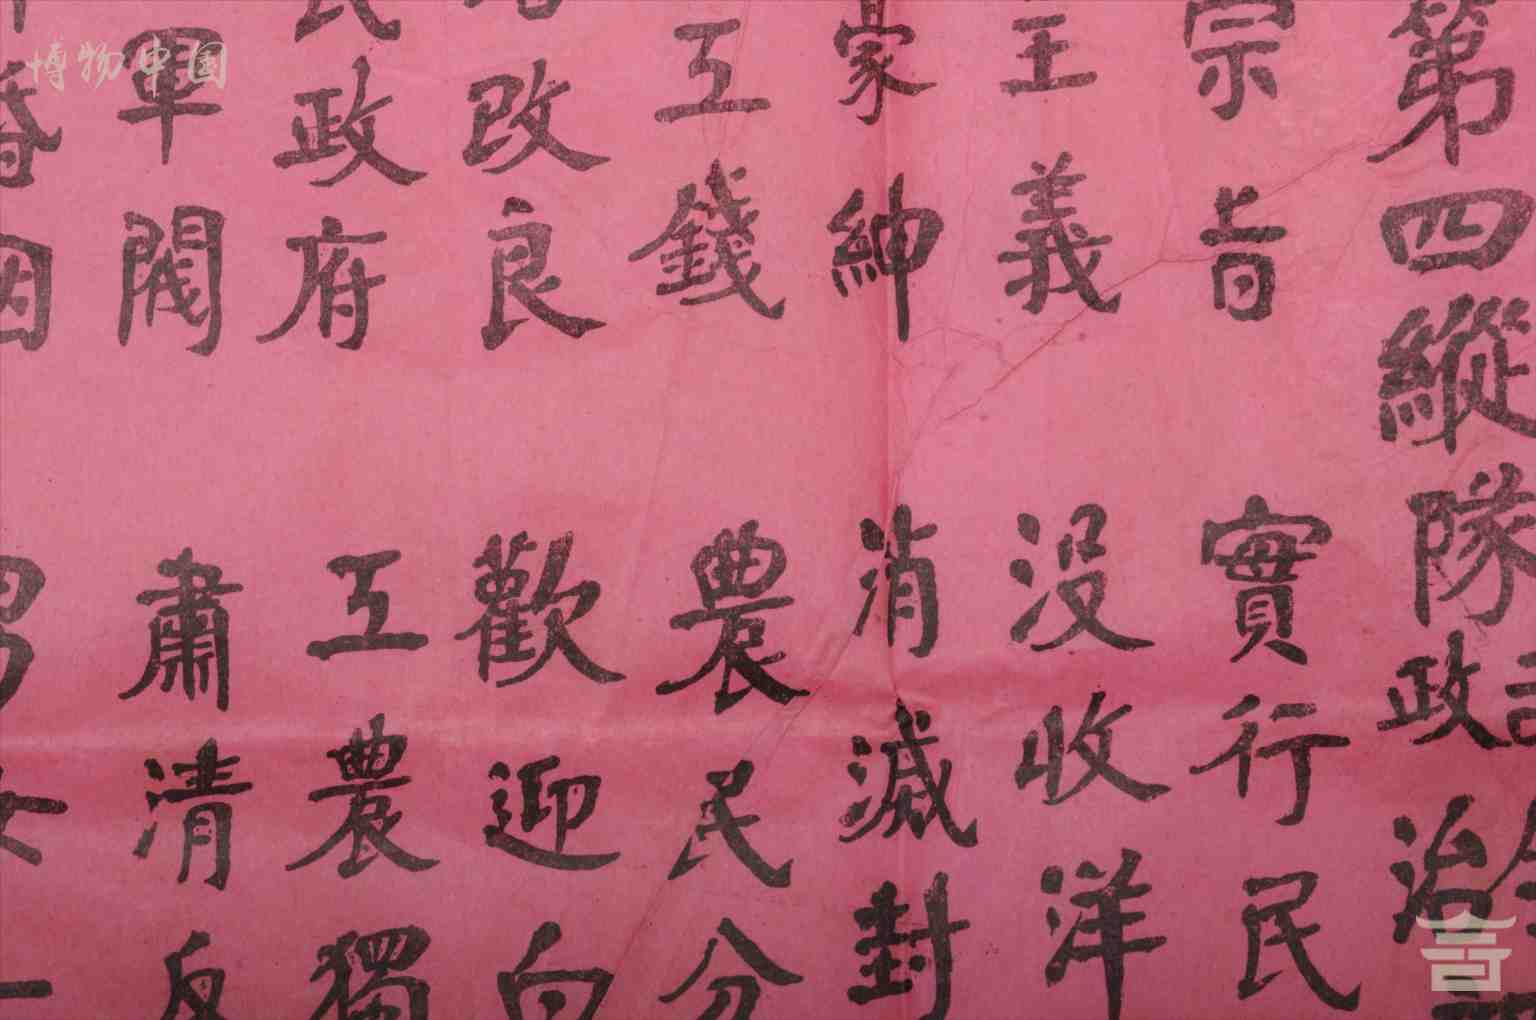 第四縱隊政治
宗旨 實行民
主義 没收洋
豪紳 消滅封
工錢 農民分
改良 歡迎白
民政府 工農獨
軍閥 肅清反
婚姻 男女一
博物中国